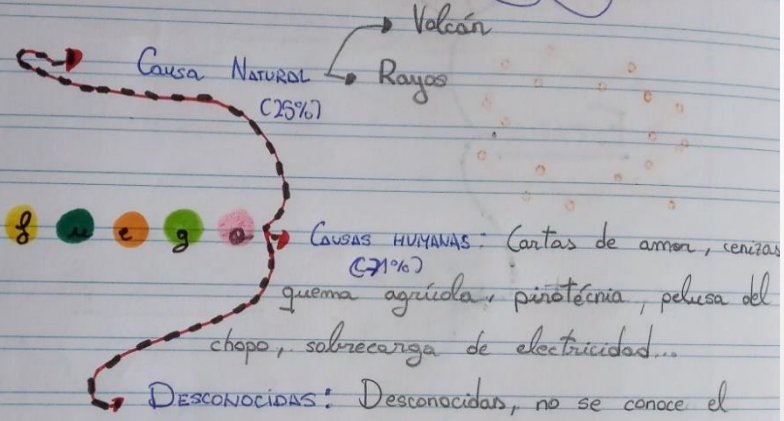 Volcán
Causa NATURAL Rayos
(25%)
fuego
CAUSAS HUMANAS: Cartas de amor, cenizas
(71%)
quema agrícola, pirotécnia, pelusa del
chopo, sobrecarga de electricidad...
DESCONOCIDAS: Desconocidas, no se conoce el